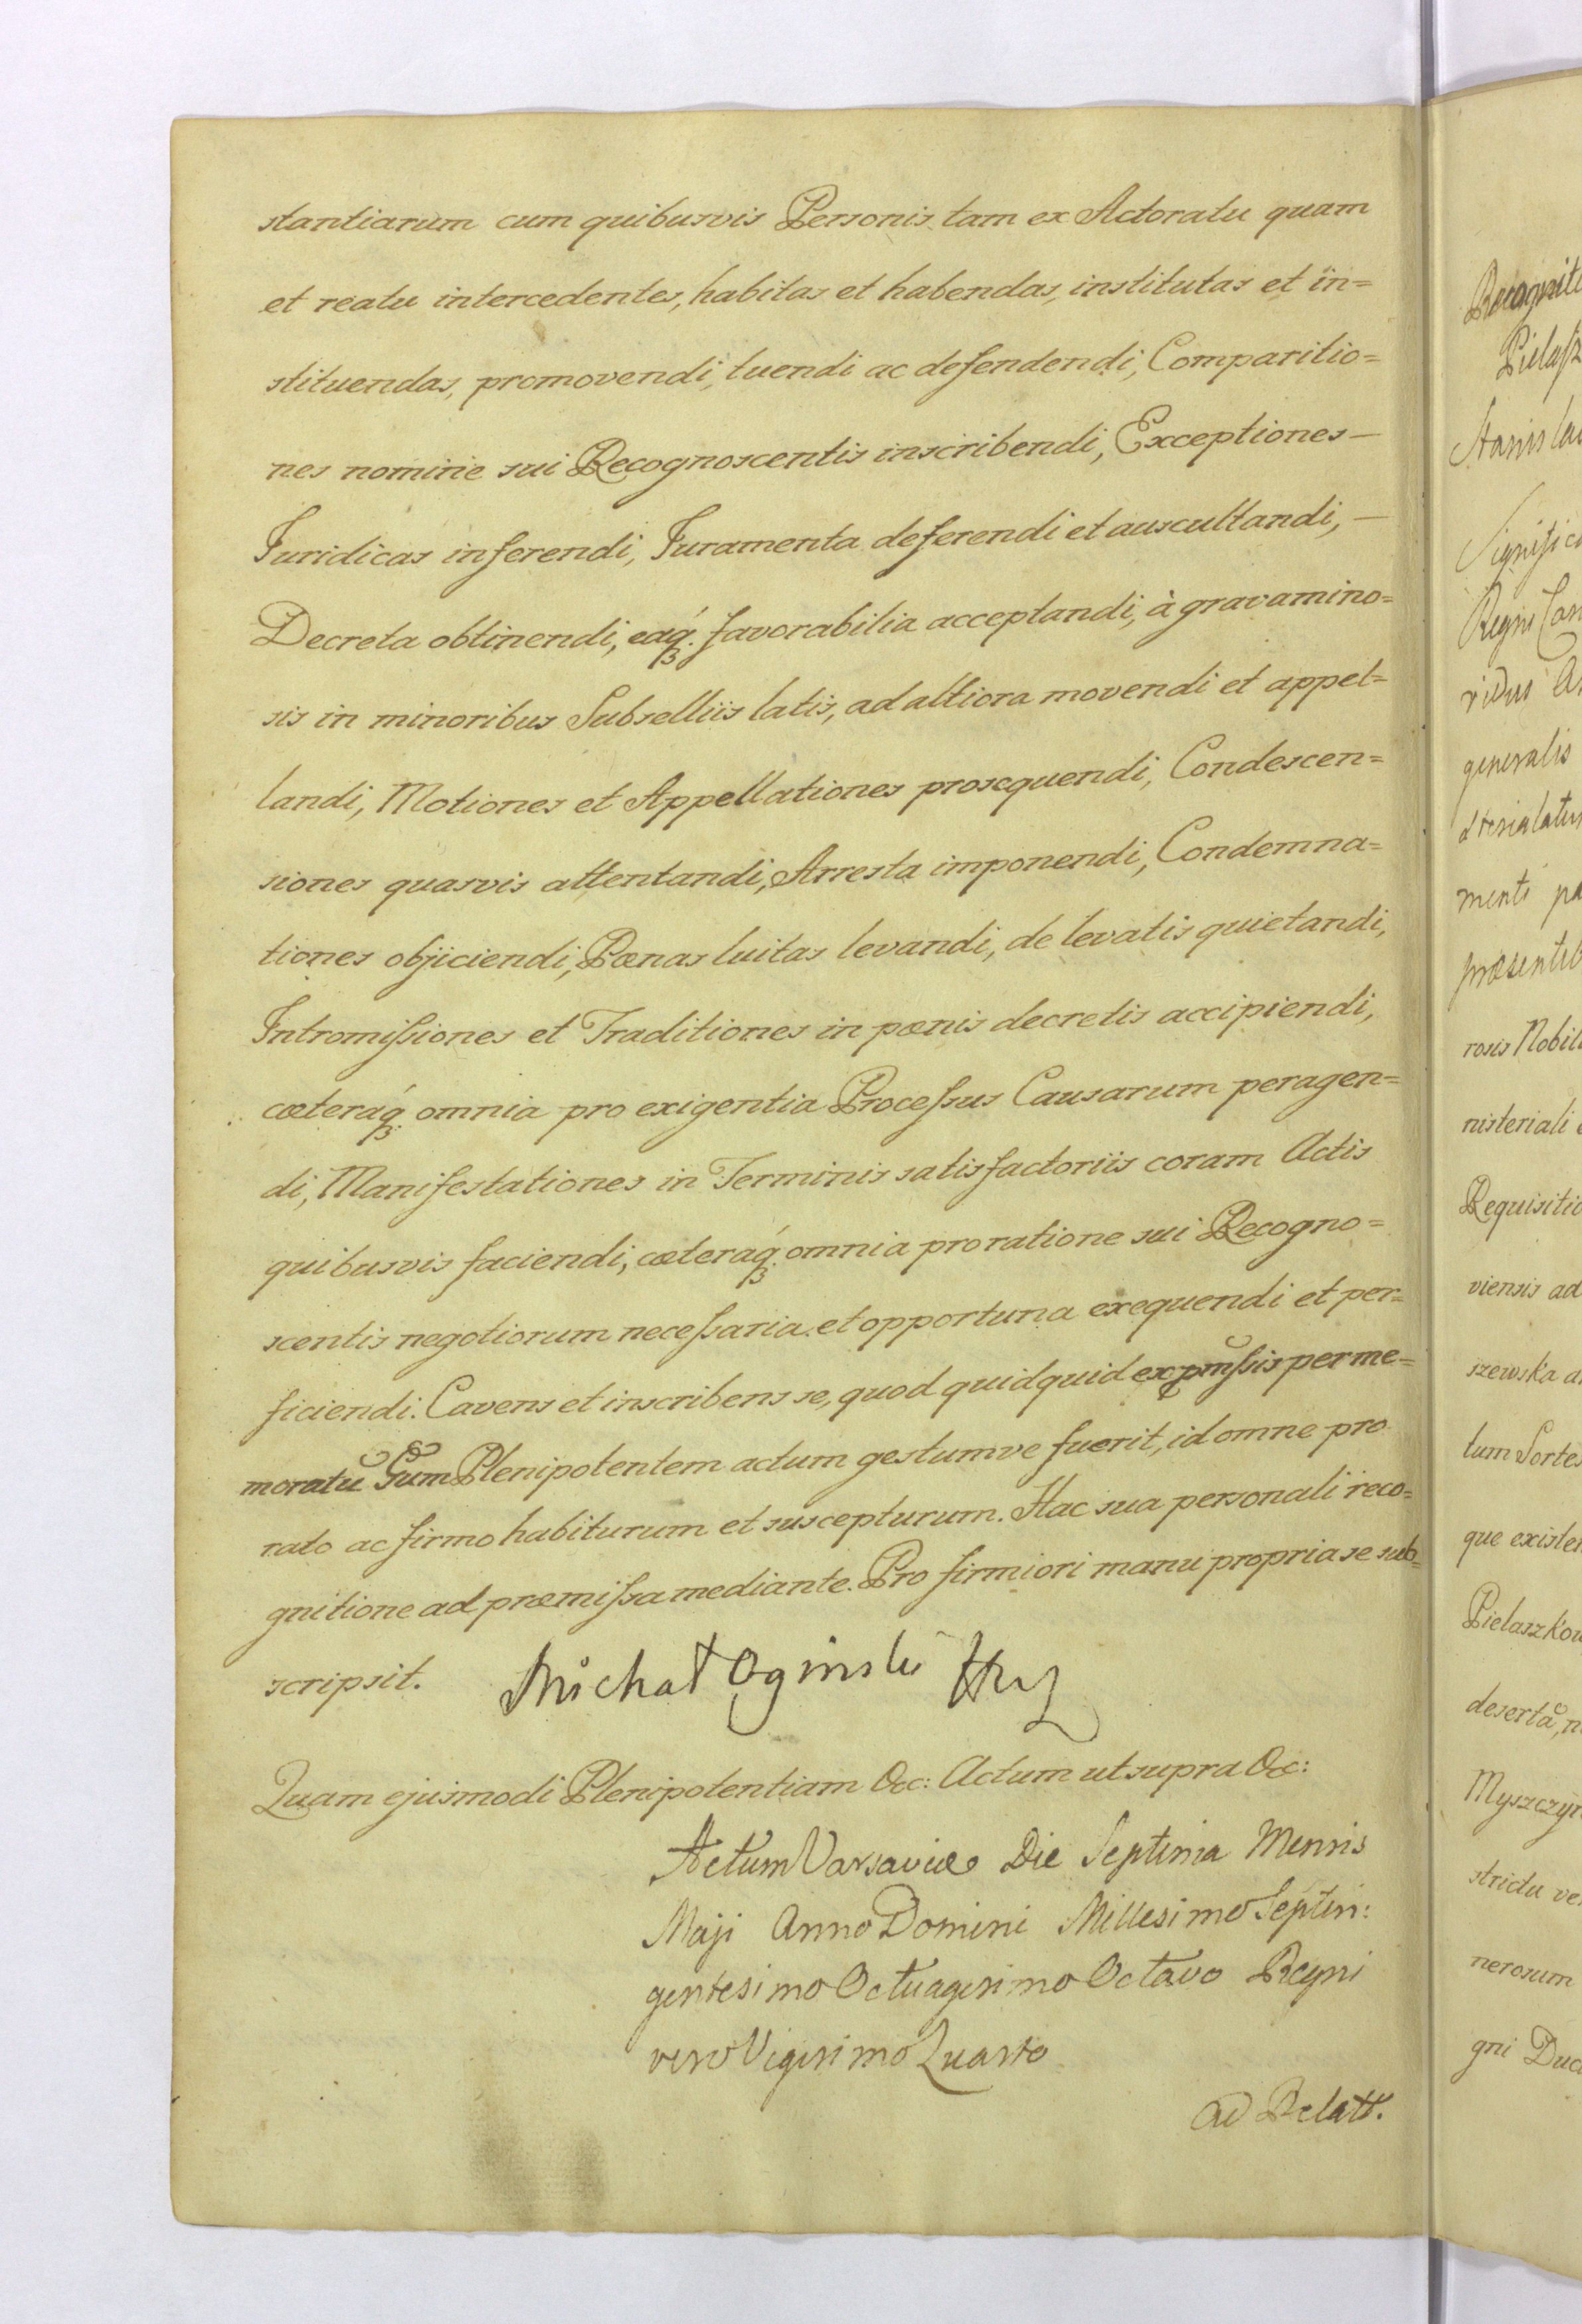 stantiarum cum quibusvis Personis tam ex Actoratu quam
et reatu intercedentes, habitas et habendas, institutas et in=
stituendas, promovendi, tuendi ac defendendi, Comparitio=
nes nomine sui Recognoscentis inscribendi, Exceptiones—
Juridicas inferendi, Juramenta deferendi et auscultandi,—
Decreta obtinendi, eaq́ꝫ. favorabilia acceptandi, à gravamino=
sis in minoribus Subselliis latis, ad altiora movendi et appel=
landi, Motiones et Appellationes prosequendi, Condescen=
siones quasvis attentandi, Arresta imponendi, Condemna=
tiones objiciendi, Pœnas luitas levandi, de levatis quietandi,
Intromiſsiones et Traditiones in pœnis decretis accipiendi,
cæteraq́ꝫ. omnia pro exigentia Proceſsus Causarum peragen=
di, Manifestationes in Terminis satisfactoriis coram Actis
quibusvis faciendi, cæteraq́ꝫ. omnia pro ratione sui Recogno=
scentis negotiorum neceſsaria et opportuna exequendi et per=
ficiendi. Cavens et inscribens se, quod quidquid ex pmiſsis per me=
moratu Gum Plenipotentem actum gestumve fuerit, id omne pro
rato ac firmo habiturum et suscepturum. Hac sua personali reco=
gnitione ad præmiſsa mediante. Pro firmiori manu propria se sub=
scripsit. Michał Oginski
Quam ejusmodi Plenipotentiam &c: Actum ut supra &c:
Actum Varsaviæ Die Septima Mensis
Maji Anno Domini Millesimo Septin:
gentesimo Octuagesimo Octavo Regni
vero Vigesimo Quarto
Ad Relatt.
Recognit
Pielaſz
Stanisla
Signific
Regni Con
vidus A
generalis
menti pa
præsentib
rosis Nobil
nisteriali
Requisitio
viensis ad
szewska a
tum Sortes
que existe
Pielaszkow
deserta, n
Myszczyn
strictu ve
nerosum
gni Duc